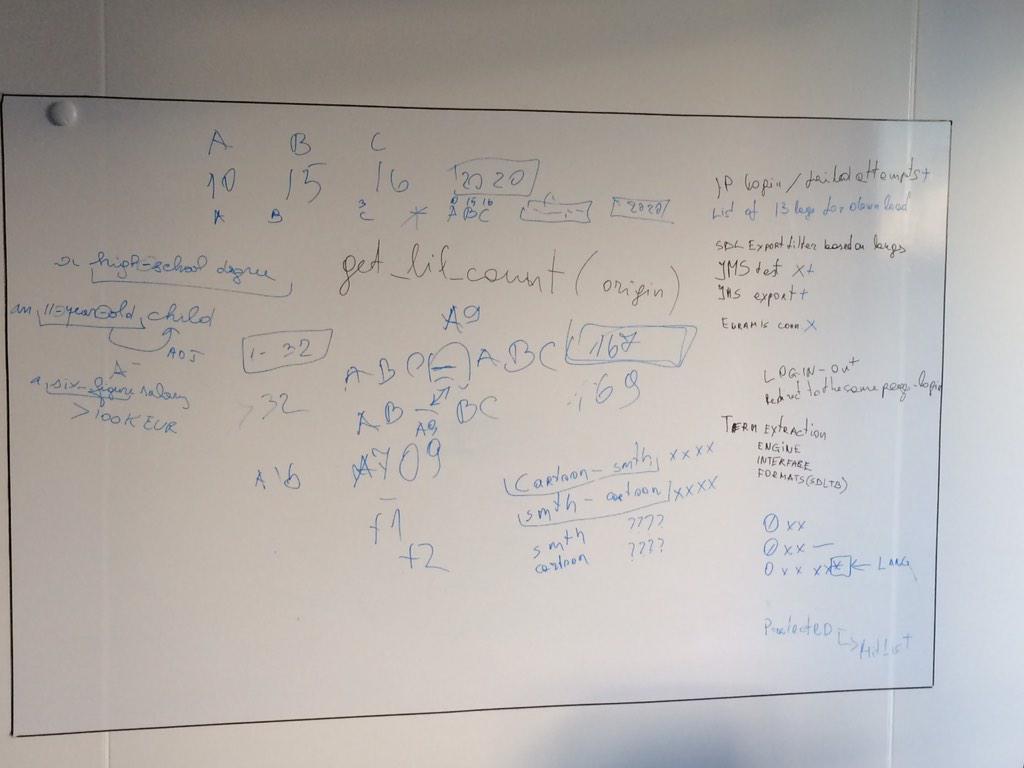 A B C
10 15 16 2020
A B C A B C 2020
a high-school degree
an 11-year-old child
ADJ
A-
a six-figure salary
>100K EUR
get_lil_count (origin)
A9
1-32
A B C A B C 167
>32
A B BC 69
A9
A16 A709
f1
f2
Cartoon-smth xxxx
smth-cartoon xxxx
smth ????
cartoon ????
IP login/failed attempts+
List of 13 langs for download
SDL Export filter based on langs
JMS test x+
JMS export+
EURAMIS conn x
LOG-IN-out+
Redirect to the same page-login
TERM EXTRACTION
ENGINE
INTERFACE
FORMATS (SDLTB)
0 xx
0 xx —
0 x x xxx ← LANG